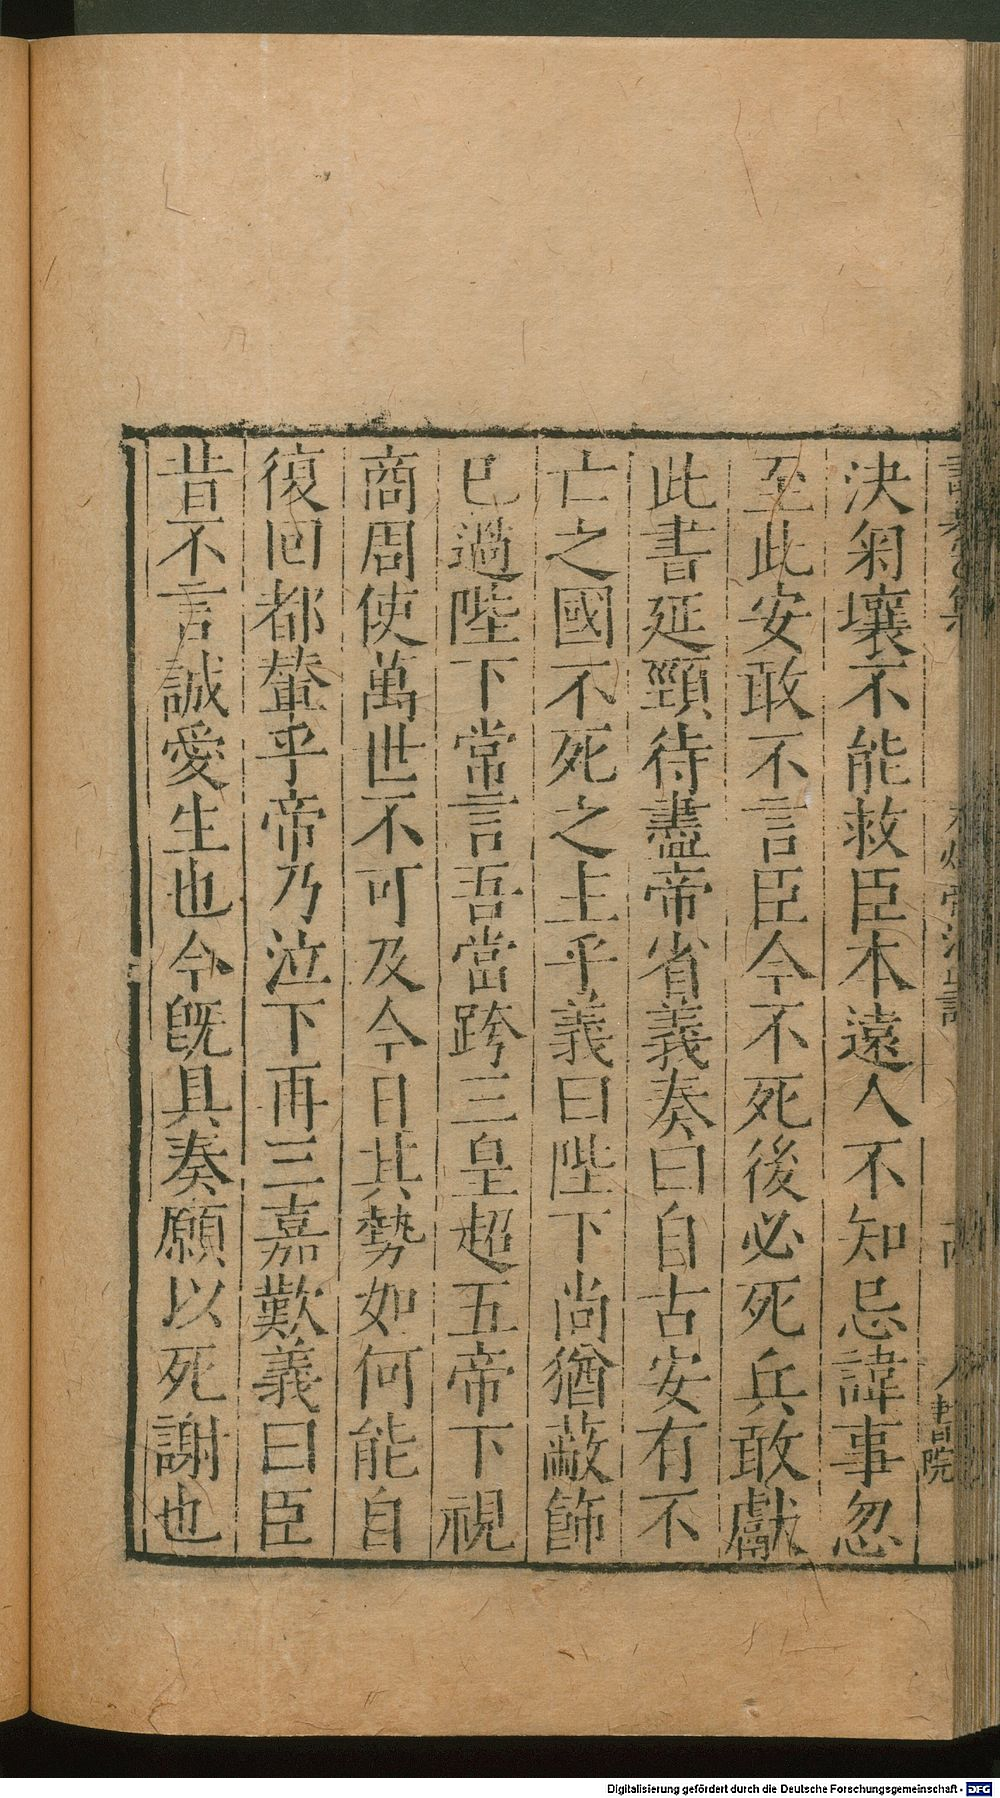 決匊壤不能救臣本遠人不知忌諱事忽
至此安敢不言臣今不死後必死兵敢獻
此書延頸待盡帝省義奏曰自古安有不
亡之國不死之主乎義曰陛下尚猶蔽飾
已過陛下常言吾當跨三皇超五帝下視
商周使萬世不可及今日其勢如何能自
復回都輦乎帝乃泣下再三嘉歎義曰臣
昔不言誠愛生也今旣具奏願以死謝也
書院
Digitalisierung gefördert durch die Deutsche Forschungsgemeinschaft - DFG